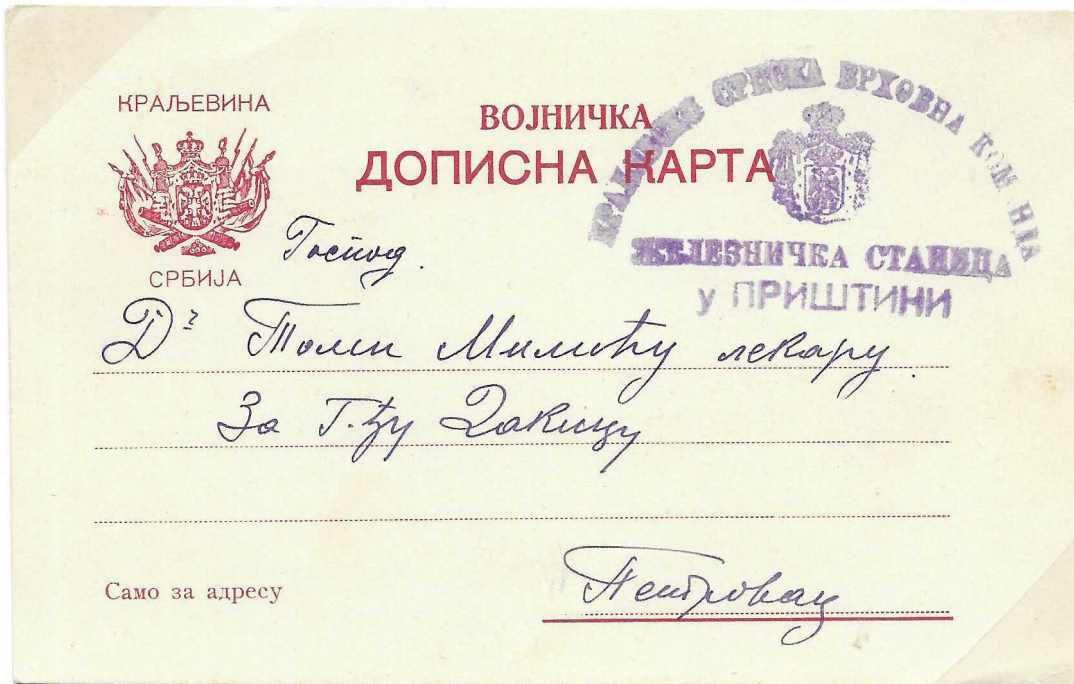 КРАЉЕВИНА
СРБИЈА
ВОЈНИЧКА
ДОПИСНА КАРТА
КРАЉЕВСКА СРПСКА ВРХОВНА КОМ НДА
ЖЕЛЕЗНИЧКА СТАНИЦА
у ПРИШТИНИ
Господ.
Dr Томи Милићу лекару
За Г.ђу Дакицу
Само за адресу
Петровац